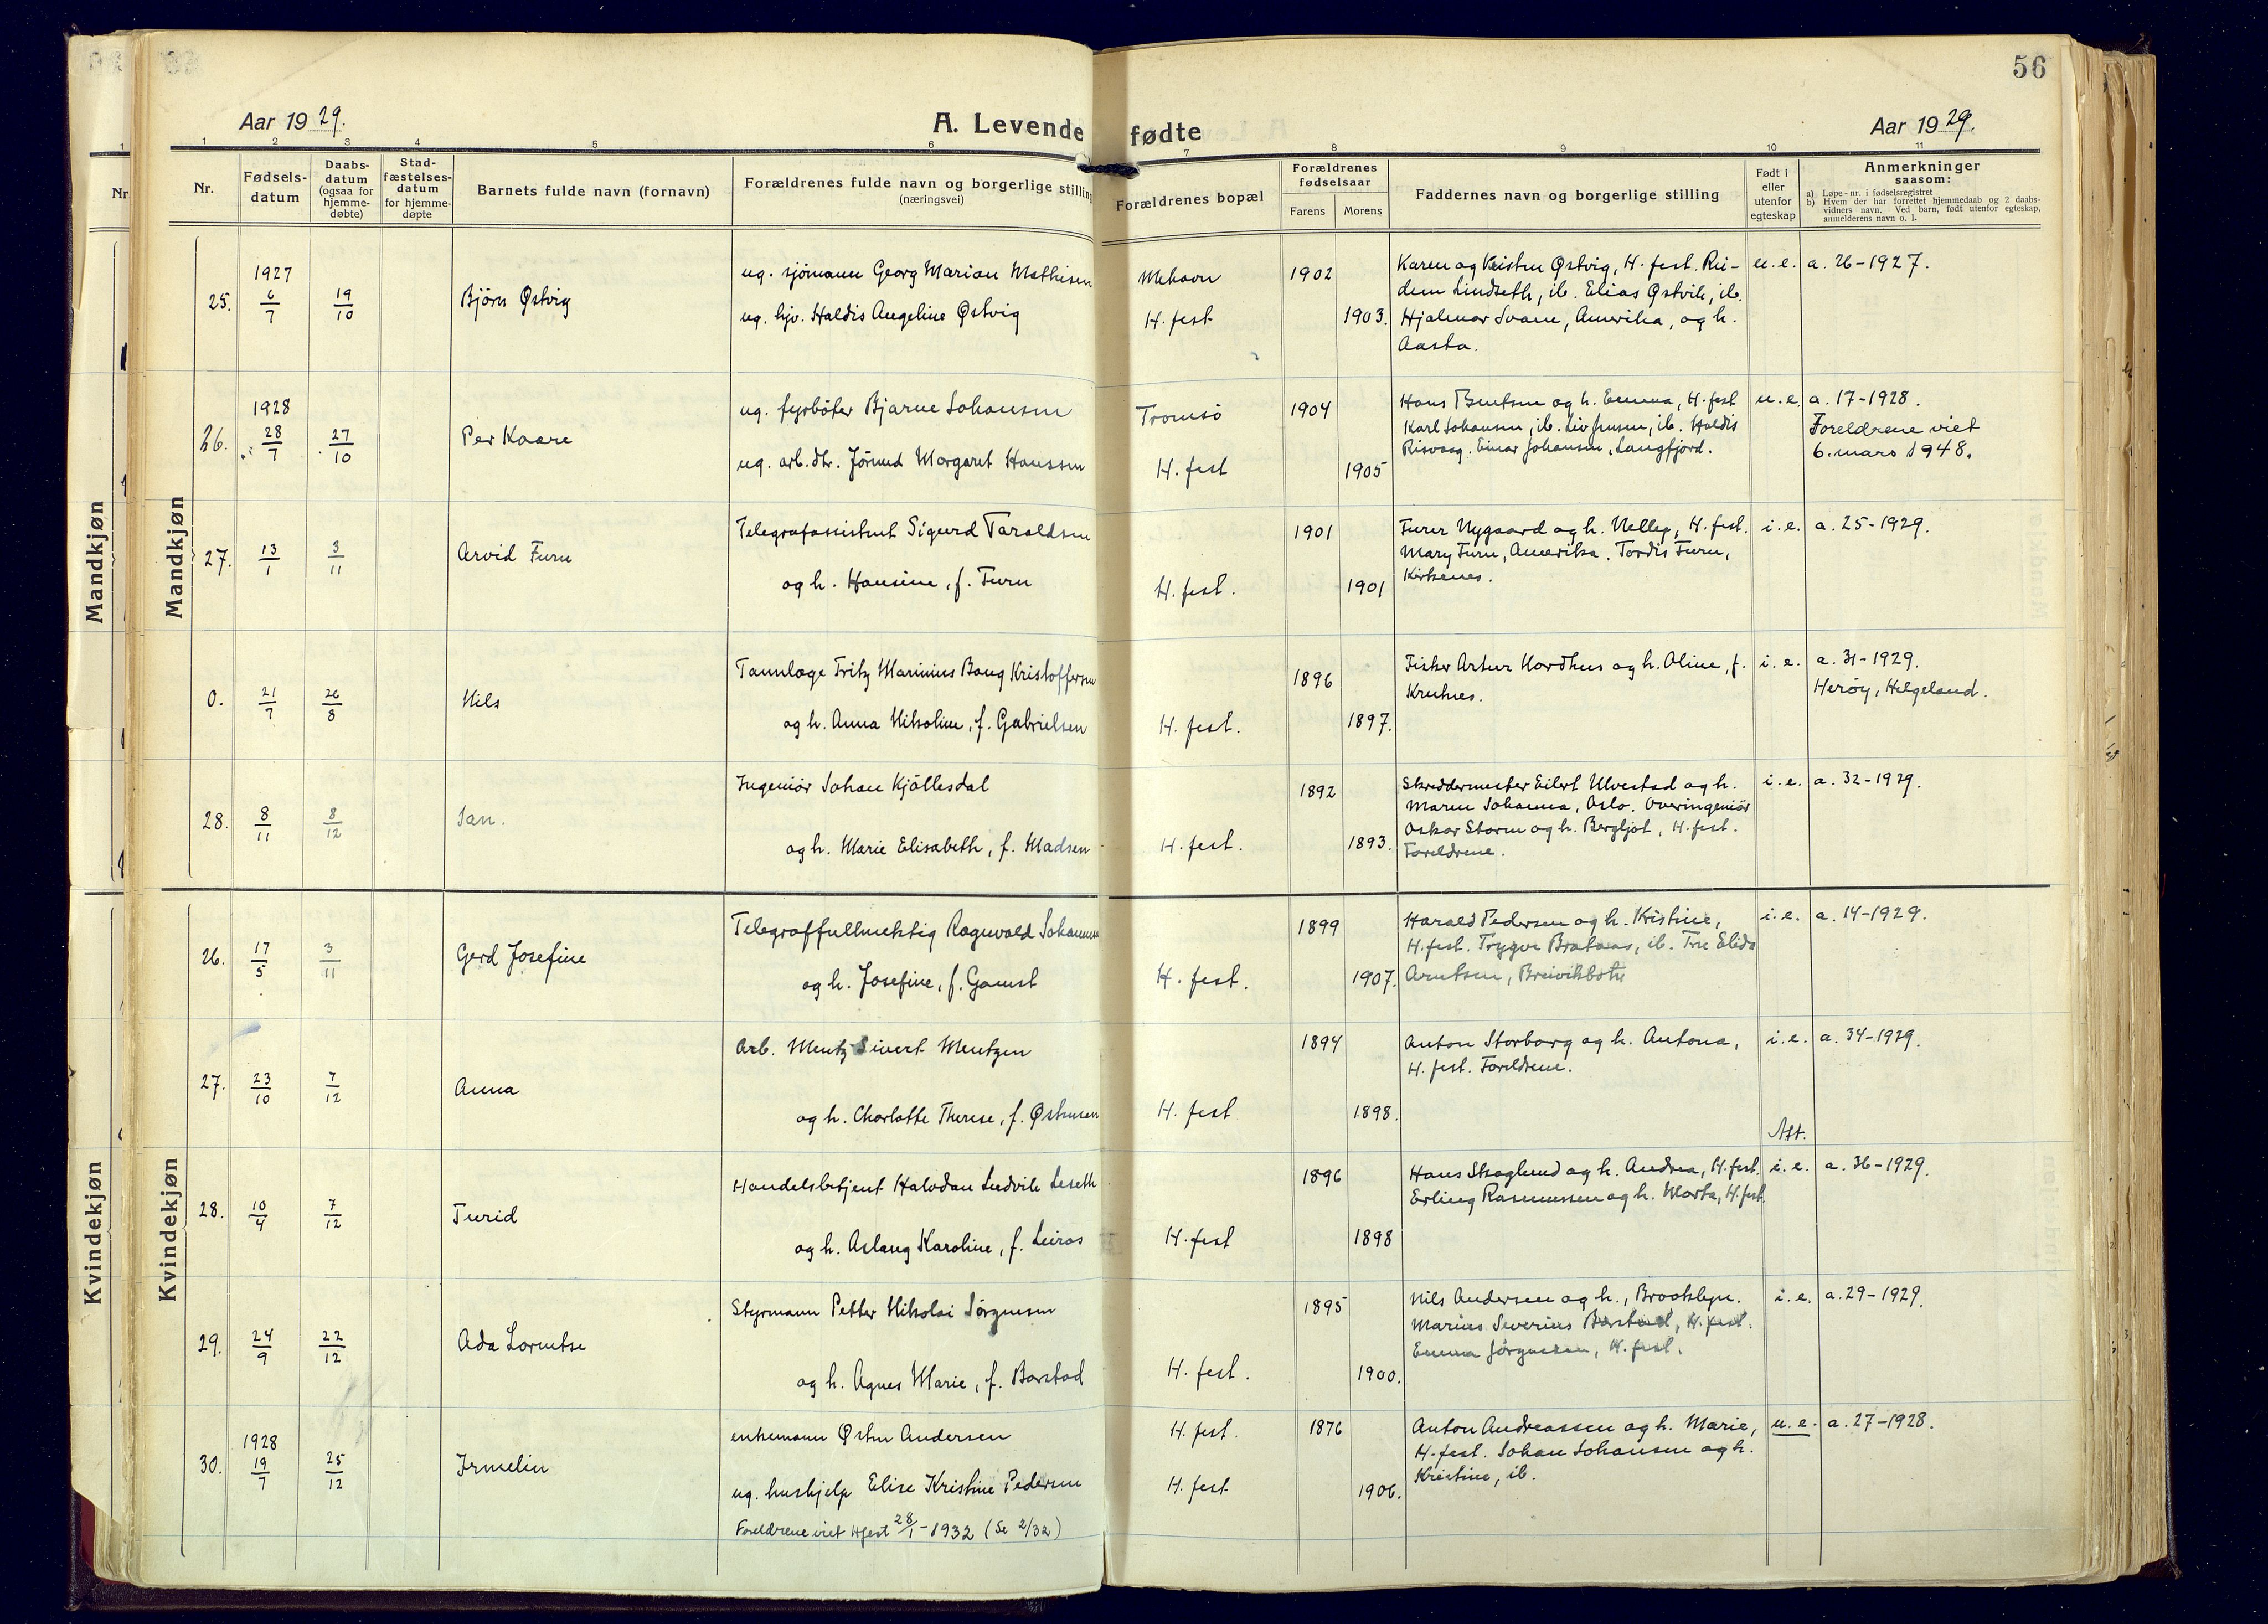 56
Aar 1929.
A. Levende fødte
Aar 1929.
1 2 3 4 5 6 7 8 9 10 11
Nr.
Fødsels-
datum
Daabs-
datum
(ogsaa for
hjemme-
døbte)
Stad-
fæstelses-
datum
for hjemme-
døpte
Barnets fulde navn (fornavn)
Forældrenes fulde navn og borgerlige stilling
(næringsvei)
Forældrenes bopæl
Forældrenes
fødselsaar
Farens Morens
Faddernes navn og borgerlige stilling
Født i
eller
utenfor
egteskap
Anmerkninger
saasom:
a) Løpe-nr. i fødselsregistret
b) Hvem der har forrettet hjemmedaab og 2 daabs-
vidners navn. Ved barn, født utenfor egteskap,
anmelderens navn o. l.
Mandkjøn
25.
1927
6/7
19/10
Bjørn Østvig
ug. sjömann Georg Marian Mathisen
ug. hjv. Haldis Angeline Østvig
Mehavn
H. fest
1902
1903.
Karen og Kristen Østvig, H. fest.
Lindseth, ib. Elias Østvik, ib.
Hjalmar Svane, Amerika, og h.
Aasta.
u. e.
a. 26-1927.
26.
1928
28/7
27/10
Per Kaare
ug. fyrböter Bjarne Johansen
ug. arb. dtr. Jörund Margaret Hanssen
Tromsö
H. fest
1904
1905
Hans Bentsen og h. Emma, H. fest
Karl Johansen, ib. Liv Jensen, ib. Haldis
Risvaag. Einar Johansen, Langfjord.
u. e.
a. 17-1928.
Foreldrene viet
6. mars 1948.
27.
13/1
3/11
Arvid Furu
Telegrafassistent Sigurd Taraldsen
og h. Hansine, f. Furu
H. fest.
1901
1901
Furer Nygaard og h. Nelly, H. fest.
Mary Furu, Amerika. Tordis Furu,
Kirkenes.
i. e.
a. 25-1929.
0.
21/7
26/8
Nils
Tannlæge Fritz Marinius Bang Kristoffersen
og h. Anna Nikoline, f. Gabrielsen
H. fest.
1896
1897.
Fisker Artur Nordhus og h. Oline, f.
Krutnes.
i. e.
a. 31-1929.
Herøy, Helgeland.
28.
8/11
8/12
Jan.
Ingeniör Johan Kjöllesdal
og h. Marie Elisabeth, f. Madsen
H. fest.
1892
1893.
Skreddermester Eilert Ulvestad og h.
Maren Johanna, Oslo. Overingeniör
Oskar Storm og h. Bergljot, H. fest.
Foreldrene.
i. e.
a. 32-1929.
Kvindekjøn
26.
17/5
3/11
Gerd Josefine
Telegraffullmektig Ragnvald Johannessen
og h. Josefine, f. Gamst
H. fest.
1899
1907.
Harald Pedersen og h. Kristine,
H. fest. Trygve Brataas, ib. Fru Elida
Arntsen, Breivikbotn
i. e.
a. 14-1929.
27.
23/10
7/12
Anna
Arb. Mentz Sivert Mentzen
og h. Charlotte Therese, f. Østensen
H. fest
1894
1898.
Anton Storborg og h. Antona,
H. fest. Foreldrene.
i. e.
a. 34-1929.
28.
10/4
7/12
Turid
Handelsbetjent Halvdan Ludvik Leseth
og h. Aslaug Karoline, f. Leiros
H. fest
1896
1898
Hans Skoglund og h. Andrea, H. fest.
Erling Rasmussen og h. Marta, H. fest.
i. e.
a. 36-1929.
29.
24/9
22/12
Ada Lorentse
Styrmann Petter Nikolai Jörgensen
og h. Agnes Marie, f. Barstad
H. fest.
1895
1900.
Nils Andersen og h., Brooklyn.
Marius Severius Barstad, H. fest.
Emma Jörgensen, H. fest.
i. e.
a. 29-1929.
30.
1928
19/7
25/12
Irmelin
enkemann Østen Andersen
ug. hushjelp Elise Kristine Pedersen
Foreldrene viet Hfest 28/1-1932 (Se 2/32)
H. fest.
H. fest
1876
1906.
Anton Andreassen og h. Marie,
H. fest. Johan Johansen og h.
Kristine, ib.
u. e.
a. 27-1928.